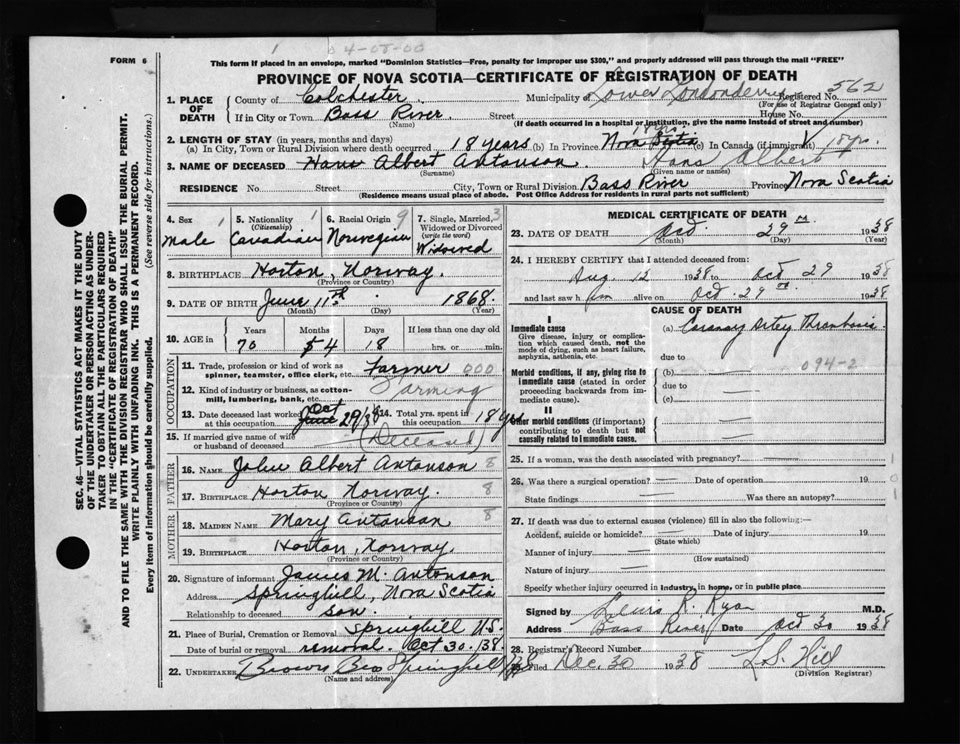 04-08-00
FORM 6
This form if placed in an envelope, marked "Dominion Statistics—Free, penalty for improper use $300," and properly addressed will pass through the mail "FREE"
PROVINCE OF NOVA SCOTIA—CERTIFICATE OF REGISTRATION OF DEATH
SEC. 46—VITAL STATISTICS ACT MAKES IT THE DUTY
OF THE UNDERTAKER OR PERSON ACTING AS UNDER-
TAKER TO OBTAIN ALL THE PARTICULARS REQUIRED
IN THE "CERTIFICATE OF REGISTRATION OF DEATH"
AND TO FILE THE SAME WITH THE DIVISION REGISTRAR WHO SHALL ISSUE THE BURIAL PERMIT.
WRITE PLAINLY WITH UNFADING INK. THIS IS A PERMANENT RECORD.
Every item of information should be carefully supplied. (See reverse side for instructions.)
1. PLACE OF DEATH County of Colchester. Municipality of Lower Londonderry Registered No. 562
(For use of Registrar General only)
If in City or Town Bass River. Street House No.
(Name) (If death occurred in a hospital or institution, give the name instead of street and number)
2. LENGTH OF STAY (in years, months and days)
(a) In City, Town or Rural Division where death occurred 18 years (b) In Province 18 yrs. Nova Scotia (c) In Canada (if immigrant) yrs.
3. NAME OF DECEASED Hans Albert Antonson. Hans Albert
(Surname) (Given name or names)
RESIDENCE No. Street City, Town or Rural Division Bass River Province Nova Scotia
(Residence means usual place of abode. Post Office Address for residents in rural parts not sufficient)
4. Sex 1 5. Nationality 1 6. Racial Origin 9 7. Single, Married, 3
(Citizenship) Widowed or Divorced
(write the word)
Male Canadian Norwegian Widowed
8. BIRTHPLACE Horton, Norway.
(Province or Country)
9. DATE OF BIRTH June 11th 1868.
(Month) (Day) (Year)
10. AGE in Years Months Days If less than one day old
70 4 18 hrs. or min.
OCCUPATION
11. Trade, profession or kind of work as Farmer 000
spinner, teamster, office clerk, etc.
12. Kind of industry or business, as cotton- Farming
mill, lumbering, bank, etc.
13. Date deceased last worked at this occupation Oct June 29/38 14. Total yrs. spent in this occupation 18 yrs
15. If married give name of wife or husband of deceased (Deceased)
FATHER
16. NAME John Albert Antonson 8
17. BIRTHPLACE Horton Norway. 8
(Province or Country)
MOTHER
18. MAIDEN NAME Mary Antonson 8
19. BIRTHPLACE Horton, Norway.
(Province or Country)
20. Signature of informant James M. Antonson
Address Springhill, Nova Scotia
Relationship to deceased Son.
21. Place of Burial, Cremation or Removal Springhill N.S.
Date of burial or removal removal. Oct 30. 38.
22. UNDERTAKER Brown Bros Springhill N.S.
(Name and address)
MEDICAL CERTIFICATE OF DEATH
23. DATE OF DEATH Oct. 29 1938
(Month) (Day) (Year)
24. I HEREBY CERTIFY that I attended deceased from:
Aug 12 1938 to Oct 29 1938
and last saw him alive on Oct. 29 1938
CAUSE OF DEATH
I
Immediate cause (a) Coronary Artery Thrombosis
Give disease, injury or complica-
tion which caused death, not the
mode of dying, such as heart failure,
asphyxia, asthenia, etc. due to
094-2
Morbid conditions, if any, giving rise to (b)
immediate cause (stated in order due to
proceeding backwards from im-
mediate cause). (c)
II
Other morbid conditions (if important)
contributing to death but not
causally related to immediate cause.
25. If a woman, was the death associated with pregnancy?
26. Was there a surgical operation? Date of operation 19
State findings Was there an autopsy?
27. If death was due to external causes (violence) fill in also the following:—
Accident, suicide or homicide? Date of injury 19
(State which)
Manner of injury
(How sustained)
Nature of injury
Specify whether injury occurred in Industry, in home, or in public place
Signed by Lewis R. Ryan M.D.
Address Bass River Date Oct 30 1938
28. Registrar's Record Number
Filed Dec. 30 1938 L.S. Hill
(Division Registrar)